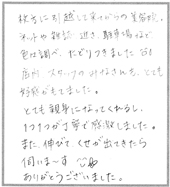 枚方に引越して来てからの美容院、
ネットや雑誌、近さ、駐車場など
色々調べ、たどりつきました。
店内、スタッフのみなさんも、とても
好感がもてました。
とても親身になってくれるし、
1つ1つが丁寧で感激しました。
また、伸びて、くせが出てきたら
伺いま〜す
ありがとうございました。